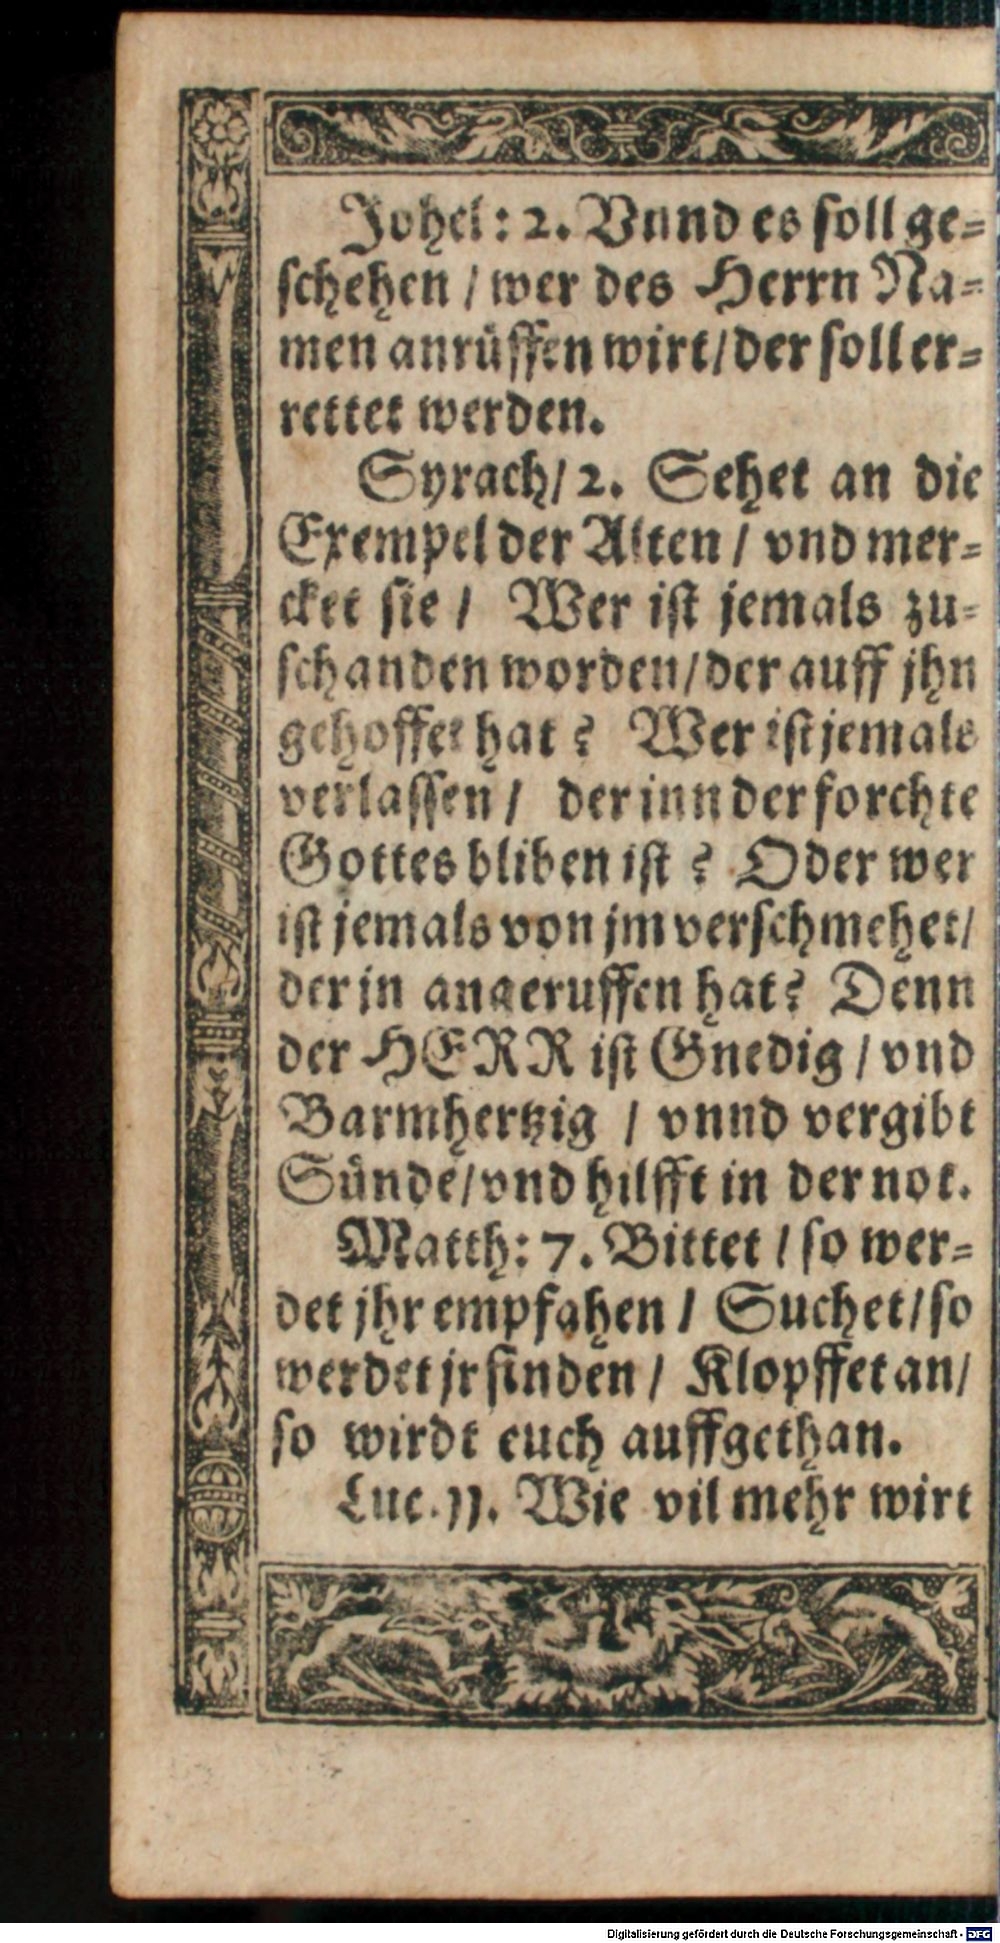 Johel: 2. Vnnd es soll ge-
schehen / wer des Herrn Na-
men anrüffen wirt / der soll er-
rettet werden.
Syrach / 2. Sehet an die
Exempel der Alten / vnd mer-
cket sie / Wer ist jemals zu-
schanden worden / der auff jhn
gehoffet hat? Wer ist jemals
verlassen / der inn der forchte
Gottes bliben ist? Oder wer
ist jemals von jm verschmehet /
der jn angeruffen hat? Denn
der HERR ist Gnedig / vnd
Barmhertzig / vnnd vergibt
Sünde / vnd hilfft in der not.
Matth: 7. Bittet / so wer-
det jhr empfahen / Suchet / so
werdet jr finden / Klopffet an /
so wirdt euch auffgethan.
Luc. 11. Wie vil mehr wirt
Digitalisierung gefördert durch die Deutsche Forschungsgemeinschaft - DFG